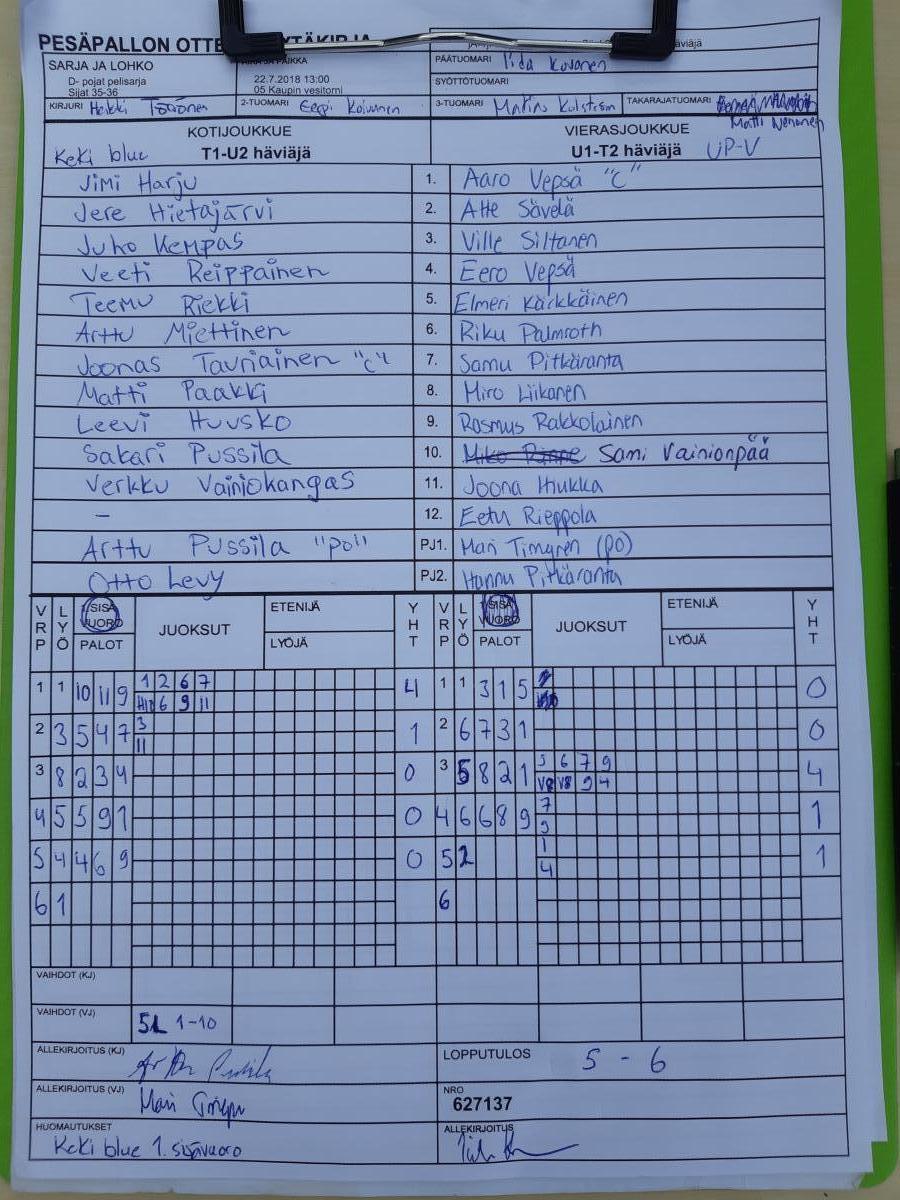 PESÄPALLON OTTE
SARJA JA LOHKO
D- pojat pelisarja
Sijat 35-36
22.7.2018 13:00
05 Kaupin vesitorni
PÄÄTUOMARI Iida Kovanen
SYÖTTÖTUOMARI
KIRJURI Heikki
2-TUOMARI Eepi Koivunen
3-TUOMARI
TAKARAJATUOMARI
Matti Nenonen
KOTIJOUKKUE
KeKi blue T1-U2 häviäjä
VIERASJOUKKUE
U1-T2 häviäjä UP-V
Jimi Harju 1. Aaro Vepsä "C"
Jere Hietajärvi 2. Atte Sävelä
Juho Kempas 3. Ville Siltanen
Veeti Reippainen 4. Eero Vepsä
Teemu Riekki 5. Elmeri Kärkkäinen
Arttu Miettinen 6. Riku Palmroth
Joonas Tauriainen "C" 7. Samu Pitkäranta
Matti Paakki 8. Miro Liikanen
Leevi Huusko 9. Rasmus Rakkolainen
Sakari Pussila 10. Sami Vainionpää
Verkku Vainiokangas 11. Joona Hiukka
- 12. Eetu Rieppola
Arttu Pussila "po" PJ1. Mari (po)
Otto Levy PJ2. Hannu Pitkäranta
VRP LYÖ SISÄ VUORO PALOT JUOKSUT ETENIJÄ LYÖJÄ YHT VRP LYÖ SISÄ VUORO PALOT JUOKSUT ETENIJÄ LYÖJÄ YHT
1 1 10 11 9 1 2 6 7 4 1 1 3 1 5 0
6 9 11
2 3 5 4 7 3 1 2 6 7 3 1 0
11
3 8 2 3 4 0 3 5 8 2 1 5 6 7 9 4
V8 V8 9 4
4 5 5 9 1 0 4 6 6 8 9 7 1
9
5 4 4 6 9 0 5 2 1 1
4
6 1 6
VAIHDOT (KJ)
VAIHDOT (VJ) 5L 1-10
ALLEKIRJOITUS (KJ)
LOPPUTULOS 5 - 6
ALLEKIRJOITUS (VJ)
NRO
627137
HUOMAUTUKSET
KeKi blue 1. sisävuoro
ALLEKIRJOITUS